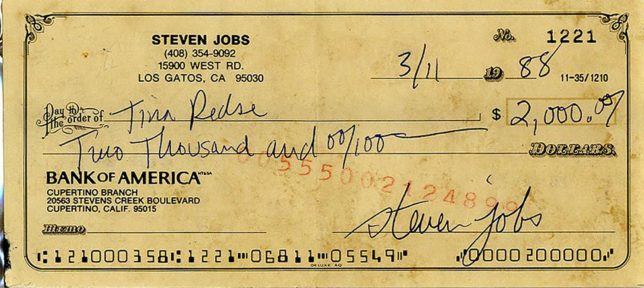 STEVEN JOBS
(408) 354-9092
15900 WEST RD.
LOS GATOS, CA 95030
No. 1221
3/11 19 88 11-35/1210
Pay to the order of Tina Redse $ 2,000.00
Two Thousand and 00/100 DOLLARS
BANK OF AMERICA NT&SA
CUPERTINO BRANCH
20563 STEVENS CREEK BOULEVARD
CUPERTINO, CALIF. 95015
Memo steven jobs
121000358 1221 06811 05549 0000200000
DELUXE